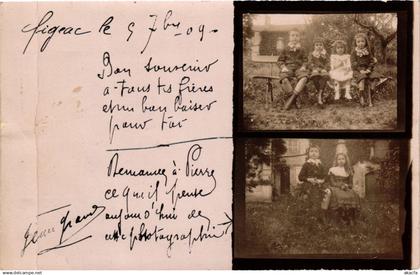 Figeac le 5 7bre 09 -
Bon souvenir
à tous tes frères
et un bon baiser
pour toi
Demandez à Pierre
ce qu'il pense
aujourd'hui de
la photographie
Jean